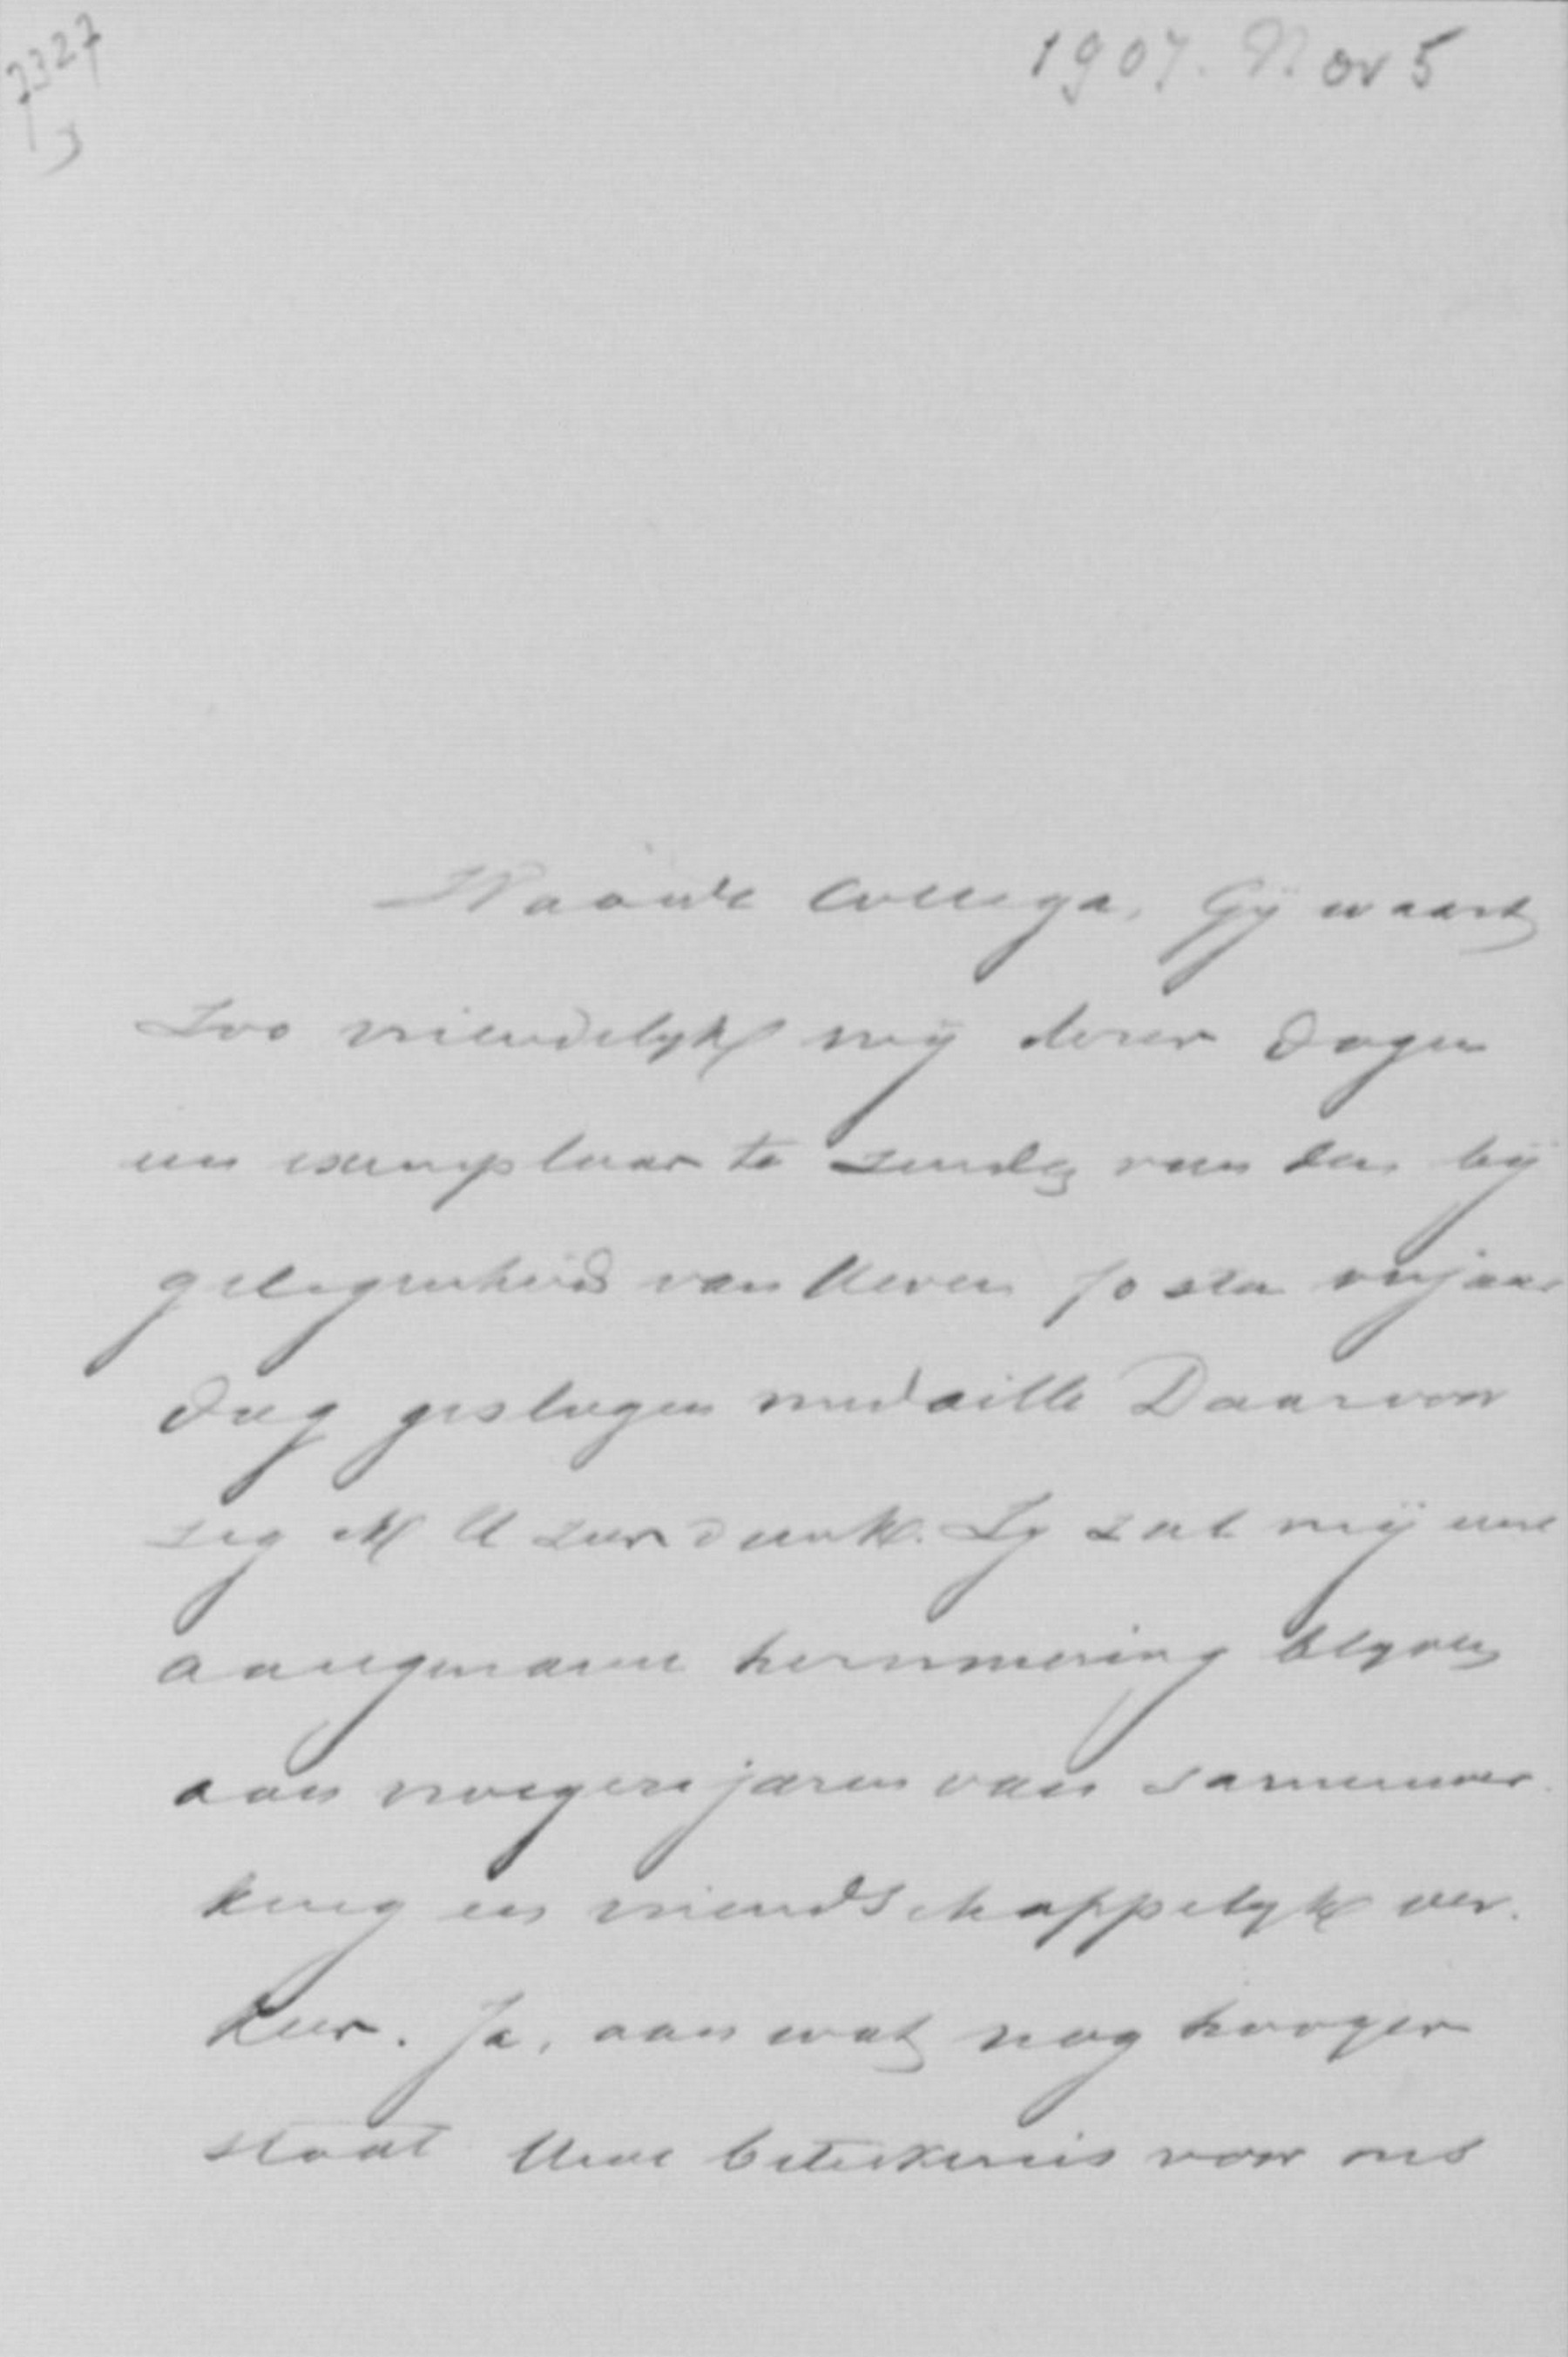 7327
1907. Nov 5
Waarde Collega, Gij waart
zoo vriendelijk mij dezer dagen
een exemplaar te zenden van den bij
gelegenheid van Uwen 70 sten verjaar
dag geslagen medaille Daarvoor
zeg ik U zeer dank. Zij zal mij eene
aangename herinnering blijven
aan vroegere jaren van samenwer
king en vriendschappelijk ver.
keer. Ja, aan wat nog hooger
staat Uwe beteekenis voor ons